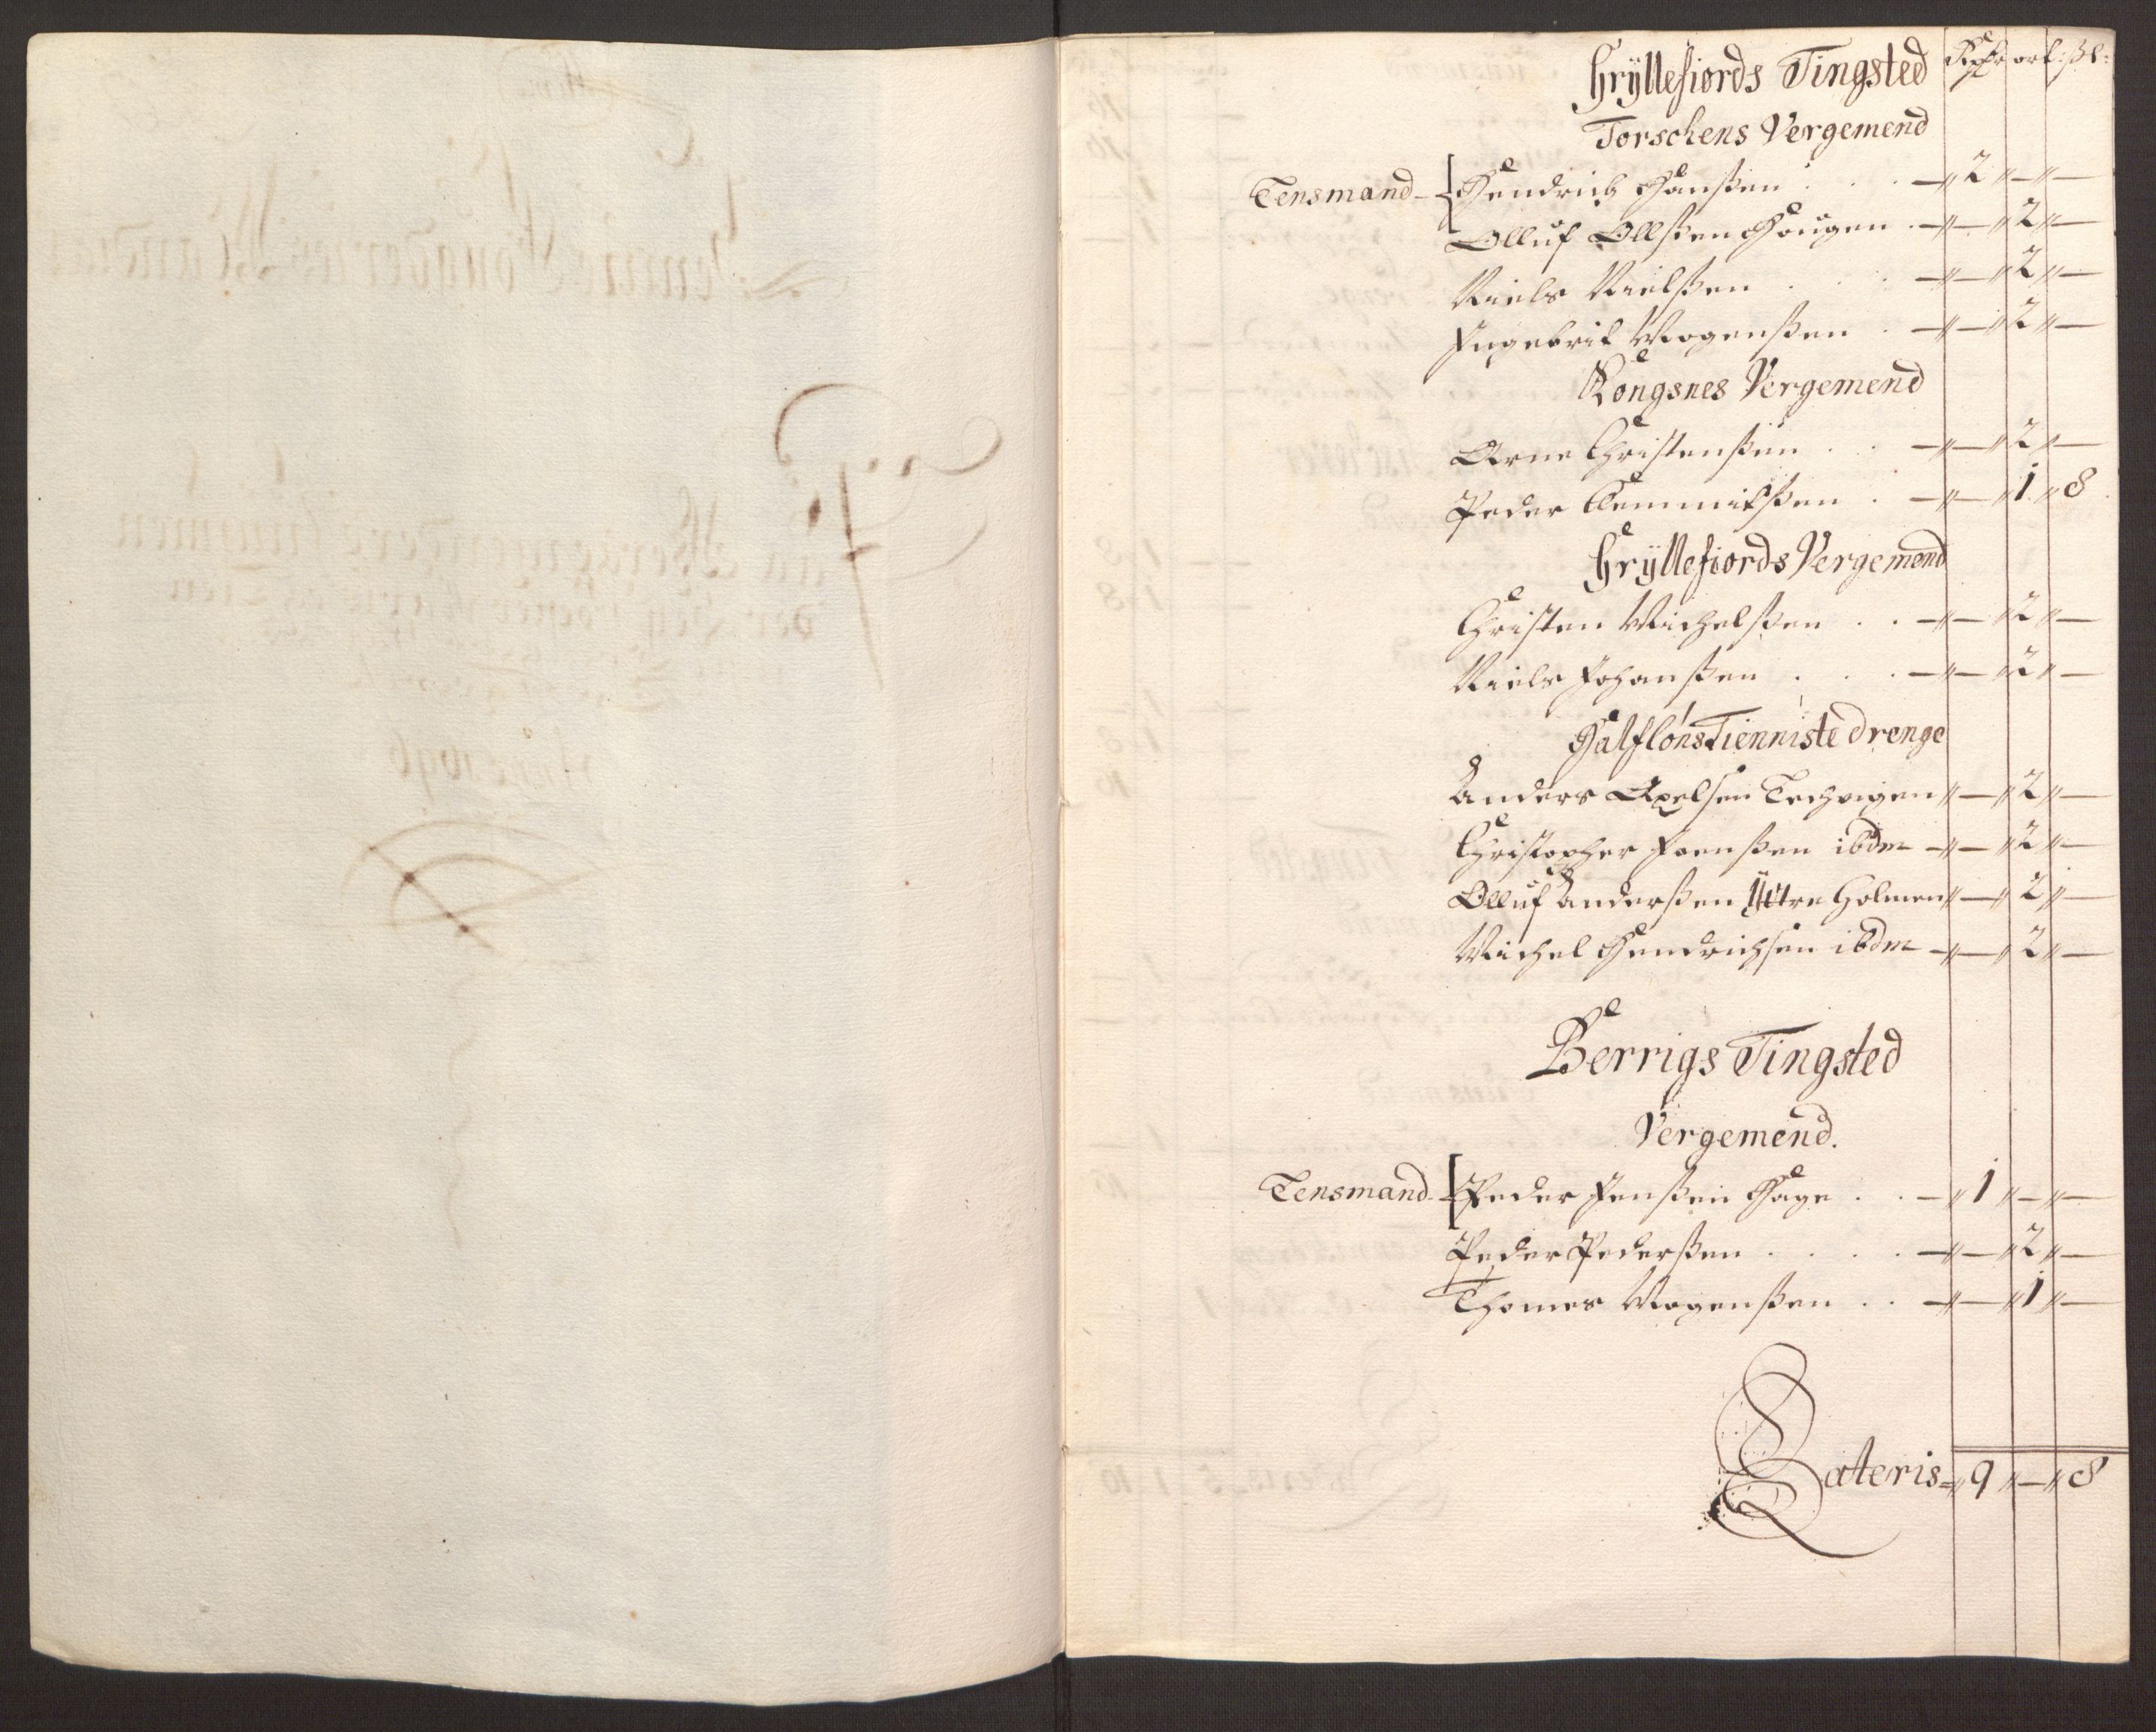 Gryllefiords Tingsted Rdr ort ß:
Torschens Vergemend
Lensmand - Hendrich Hanßen . . . - 2 - -
Olluf Ollßen Hougen . - - 2 -
Niels Nielßen . . . - - 2 -
Ingebrit Mogenßen . - - 2 -
Kongsnes Vergemend
Arne Christenßen . . - - 2 -
Peder Clemmitßen . - - 1 8
Gryllefiords Vergemend
Christen Michelßen . . - - 2 -
Niels Johanßen . . . - - 2 -
Halflóns Tienniste drenge
Anders Axelsen Techvigen - 2 -
Christopher Joenßen ibdm - - 2 -
Olluf Anderßen Yttre Holmen - 2 -
Michel Hendrichsen ibdm - - 2 -
Berrigs Tingsted
Vergemend.
Lensmand - Peder Jenßen Hage . . - 1 - -
Peder Pederßen . . . . - - 2 -
Thomes Mogenßen . . - - 1 -
Lateris - 9 - 8